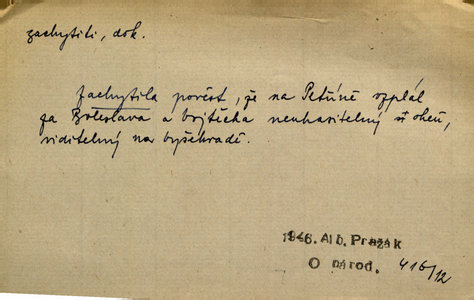 zachytiti, dok.
zachytila pověst, že na Petříně vzplál
za Boleslava a Vojtěcha neuhasitelný oheň,
viditelný na Vyšehradě.
1946. Alb. Pražák
O národ. 416/12